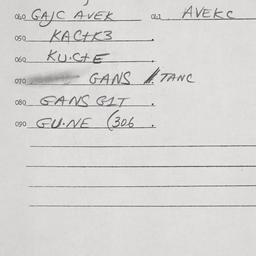 040 GAJC AVEK . 041 AVEKC
050 KACtK3 .
060 KU.CtE .
070 GANS TANC
080 GANS G1T .
090 GU.NE (306 .